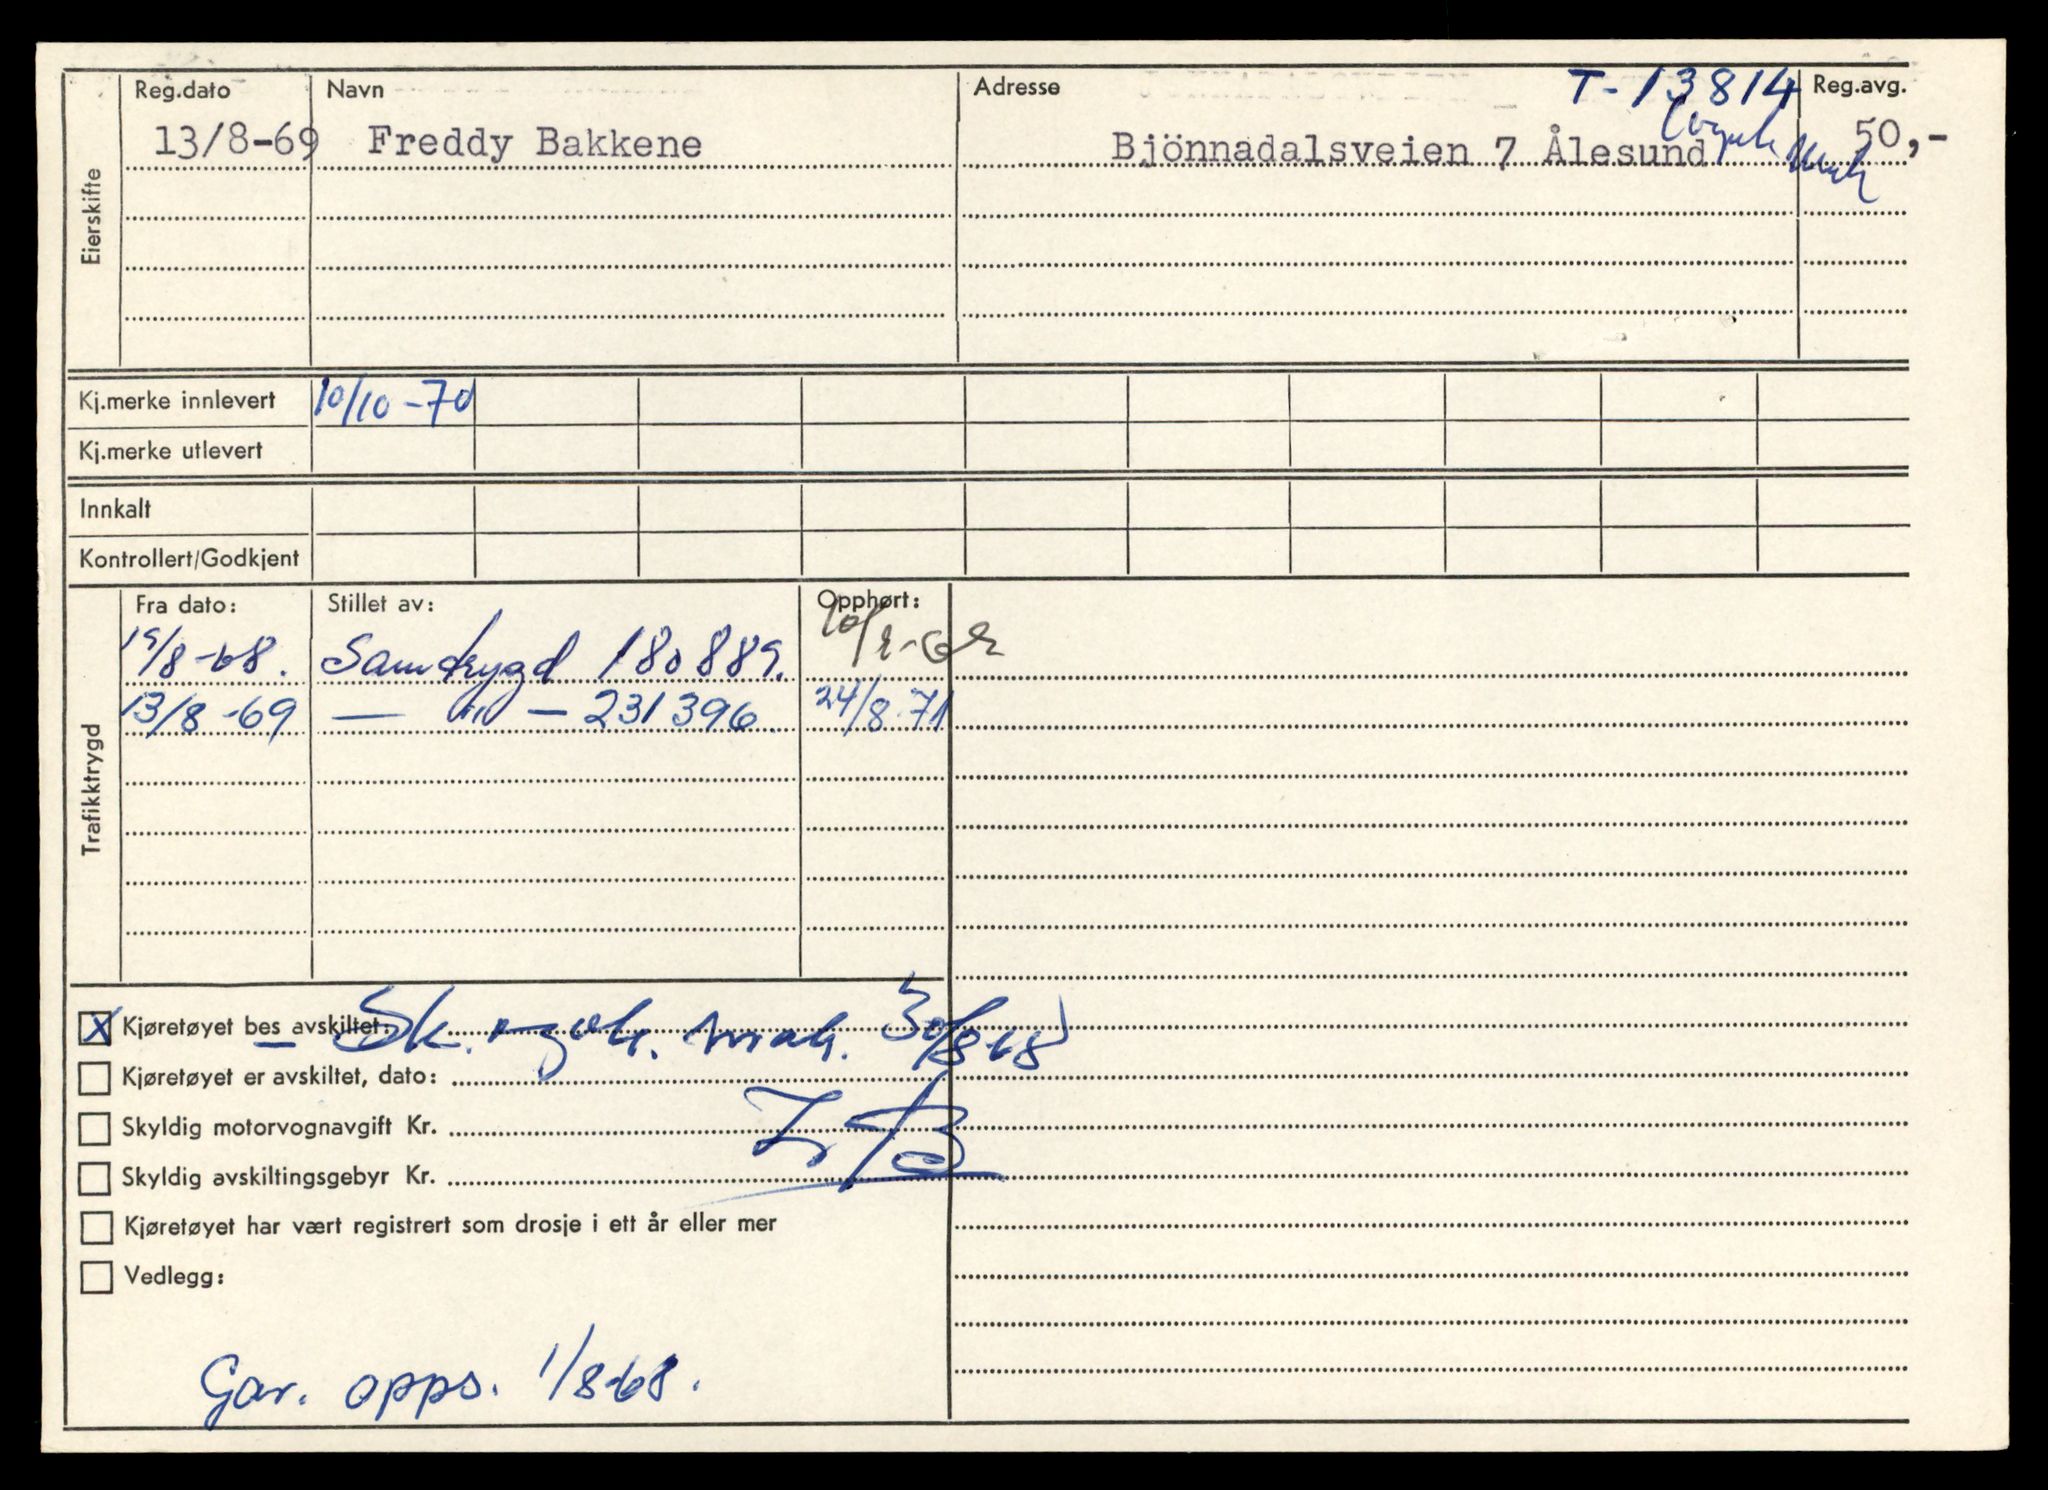 T-13814
Reg.dato Navn Adresse Reg.avg.
13/8-69 Freddy Bakkene Bjönnadalsveien 7 Ålesund 50,-
Eierskifte
Kj.merke innlevert 10/10-70
Kj.merke utlevert
Innkalt
Kontrollert/Godkjent
Trafikktrygd
Fra dato: Stillet av: Opphørt:
15/8-68. Samtrygd 180889.
13/8-69 — " — 231396 24/8.71
X Kjøretøyet bes avskiltet: 30/8-68
Kjøretøyet er avskiltet, dato:
Skyldig motorvognavgift Kr.
Skyldig avskiltingsgebyr Kr.
Kjøretøyet har vært registrert som drosje i ett år eller mer
Vedlegg:
Gar. opps. 1/8-68.